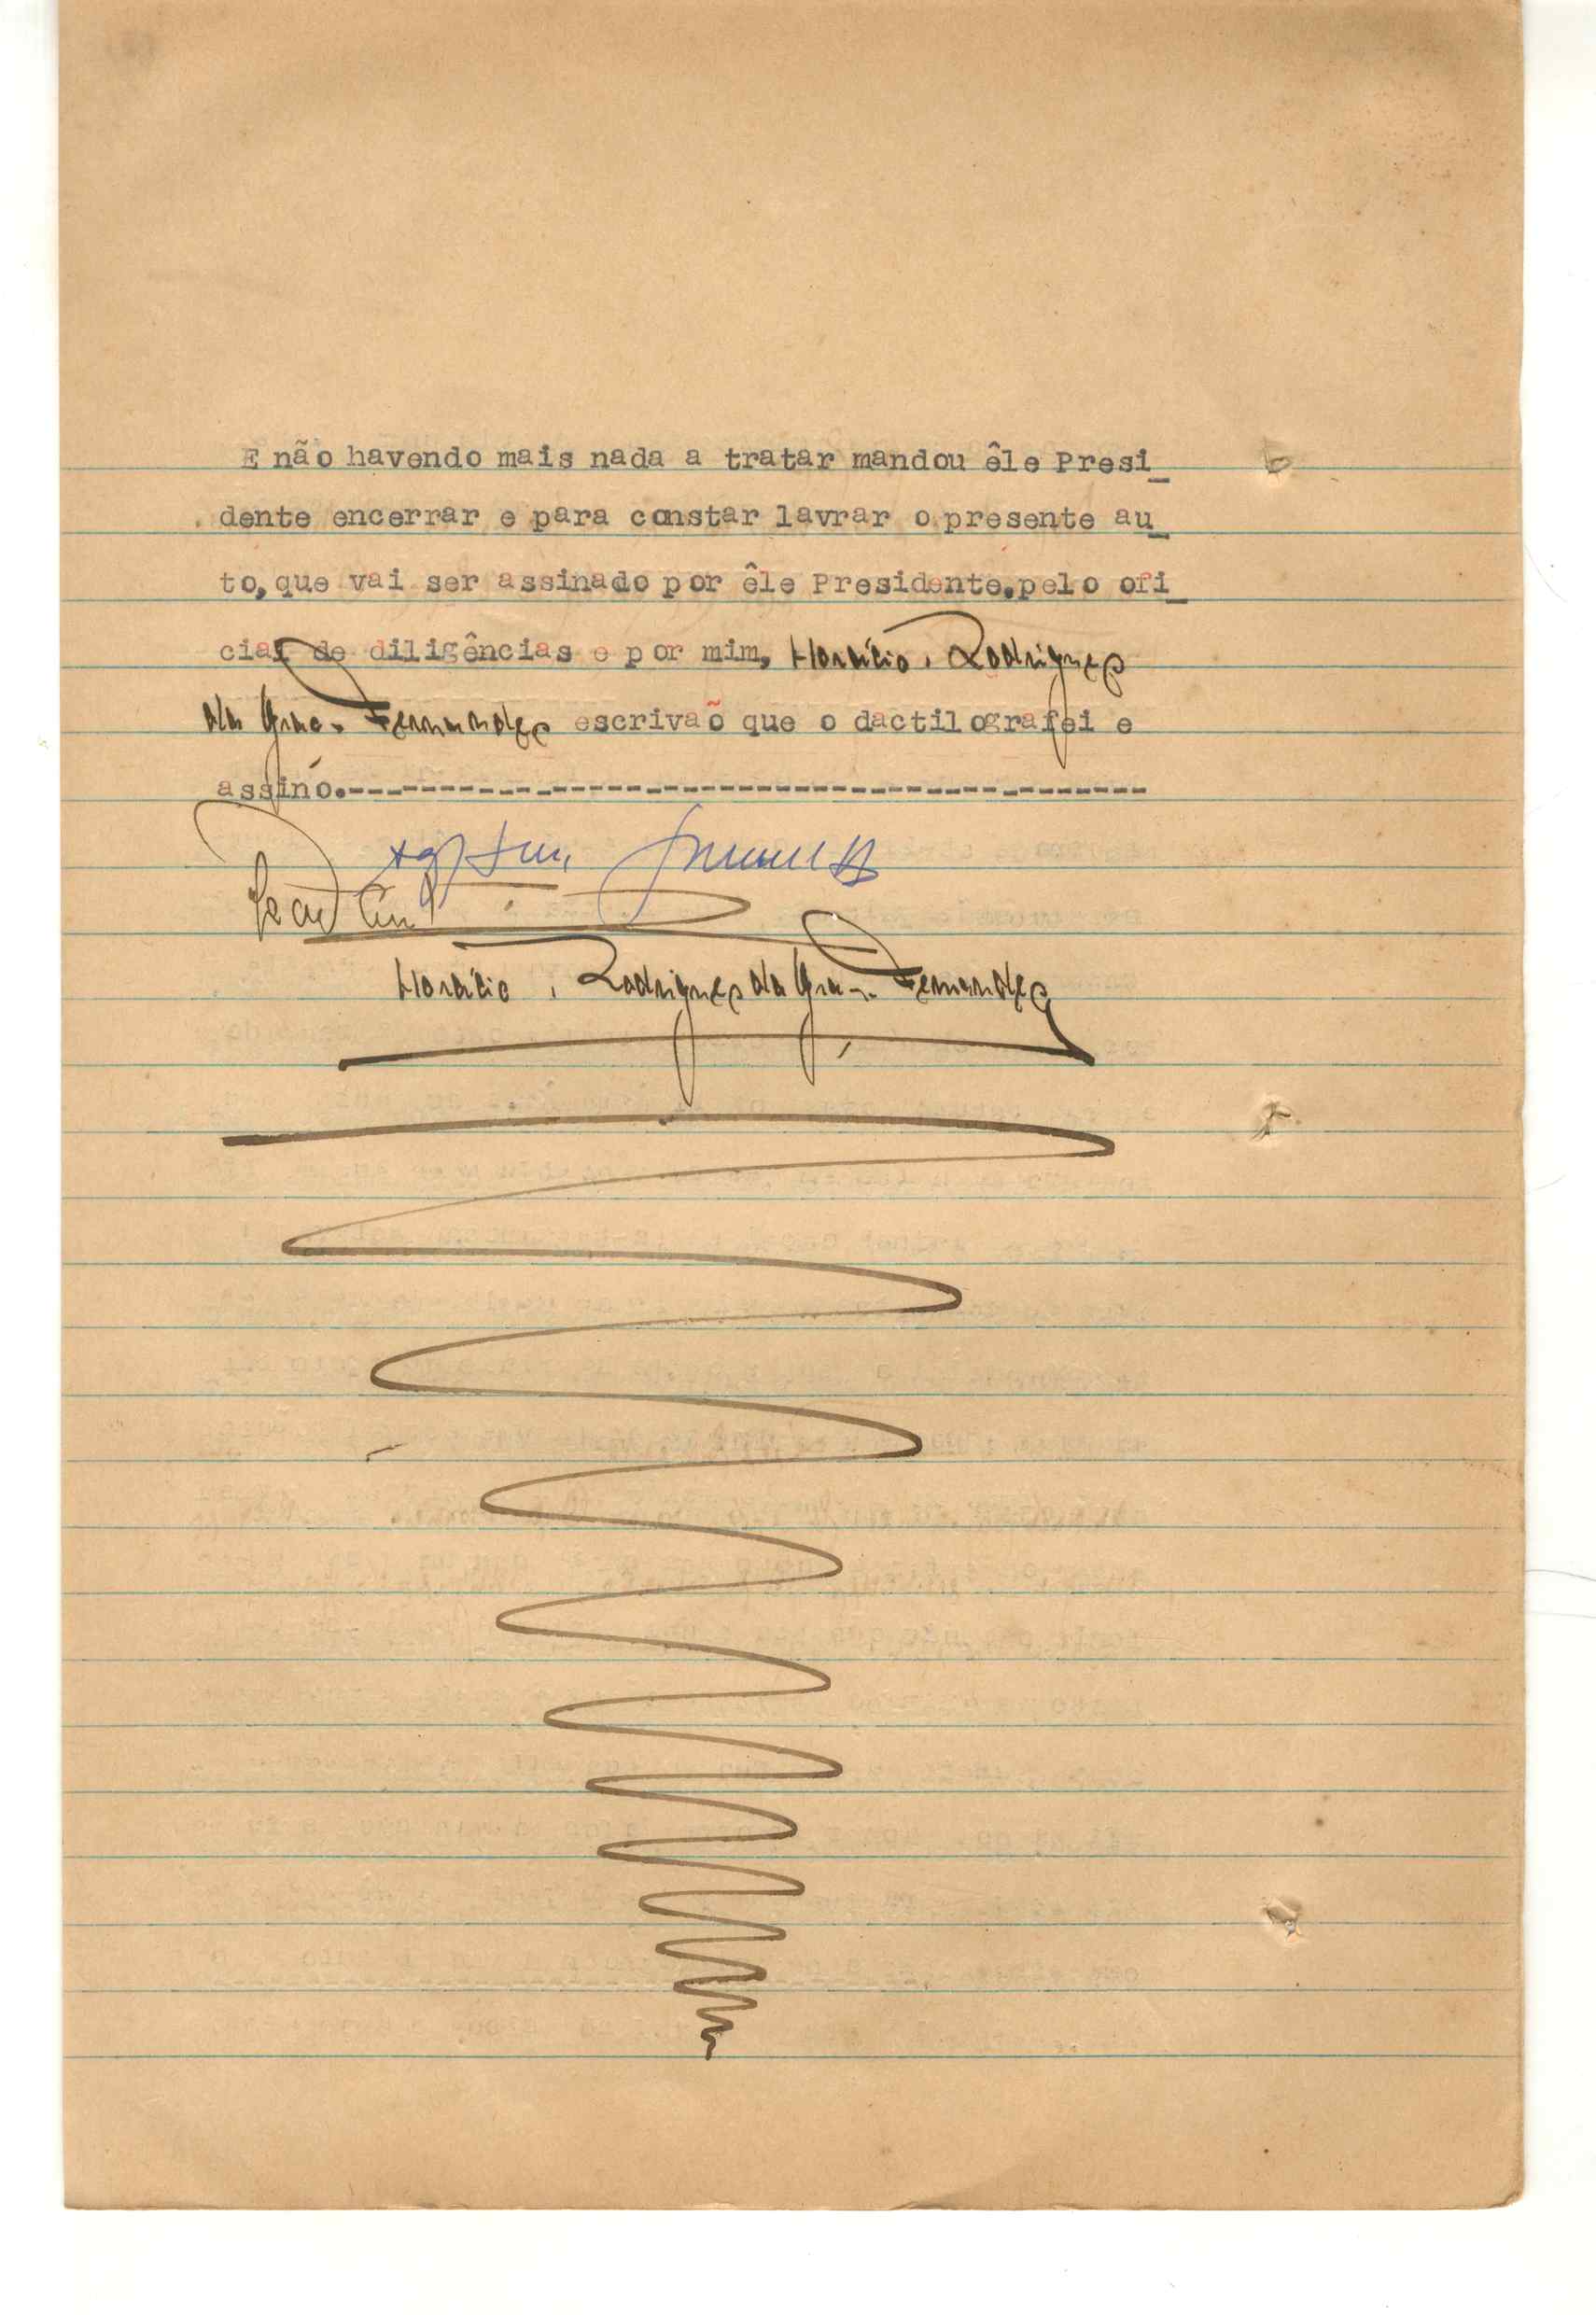 E não havendo mais nada a tratar mandou êle Presi_
dente encerrar e para constar lavrar o presente au_
to, que vai ser assinado por êle Presidente, pelo ofi_
cial de diligências e por mim, Horácio Rodrigues
da Graça Fernandes escrivaõ que o dactilografei e
assino.-----------------------------------------
Horácio Rodrigues da Graça Fernandes